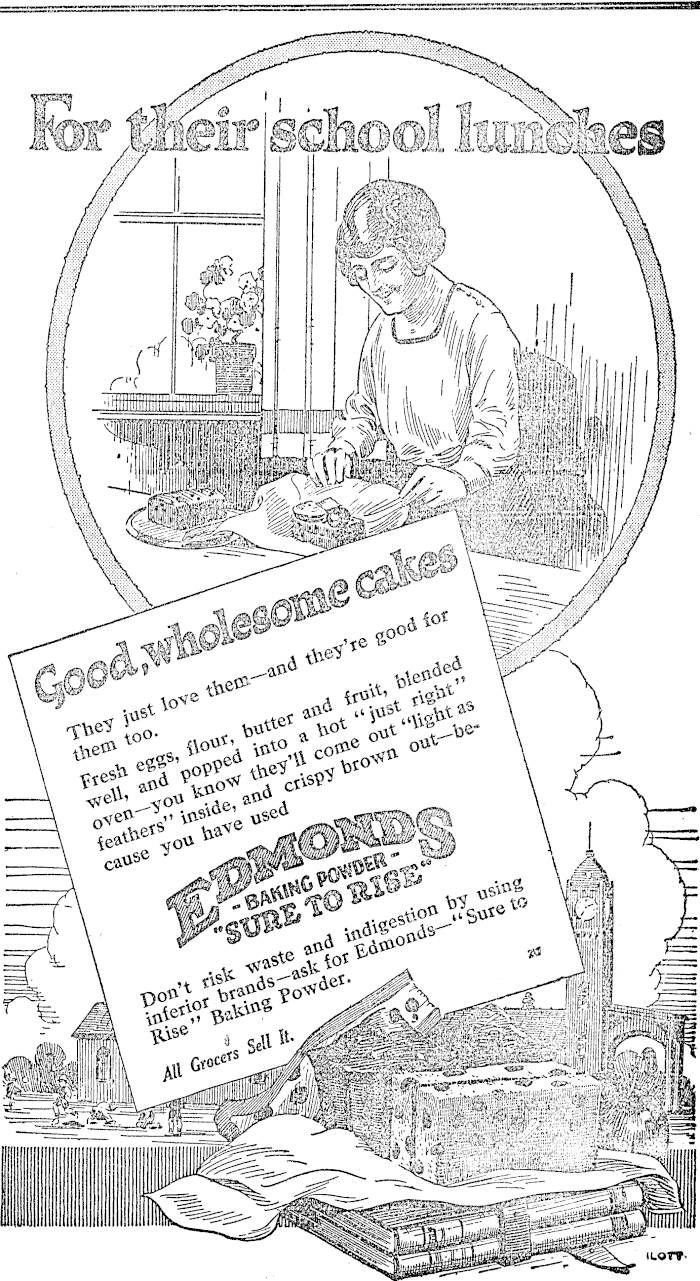 For their school lunches
Good, wholesome cakes
They just love them—and they're good for
them too.
Fresh eggs, flour, butter and fruit, blended
well, and popped into a hot "just right"
oven—you know they'll come out "light as
feathers" inside, and crispy brown out—be-
cause you have used
EDMONDS
- BAKING POWDER -
"SURE TO RISE"
Don't risk waste and indigestion by using
inferior brands—ask for Edmonds—"Sure to
Rise" Baking Powder.
All Grocers Sell It.
ILOTT.